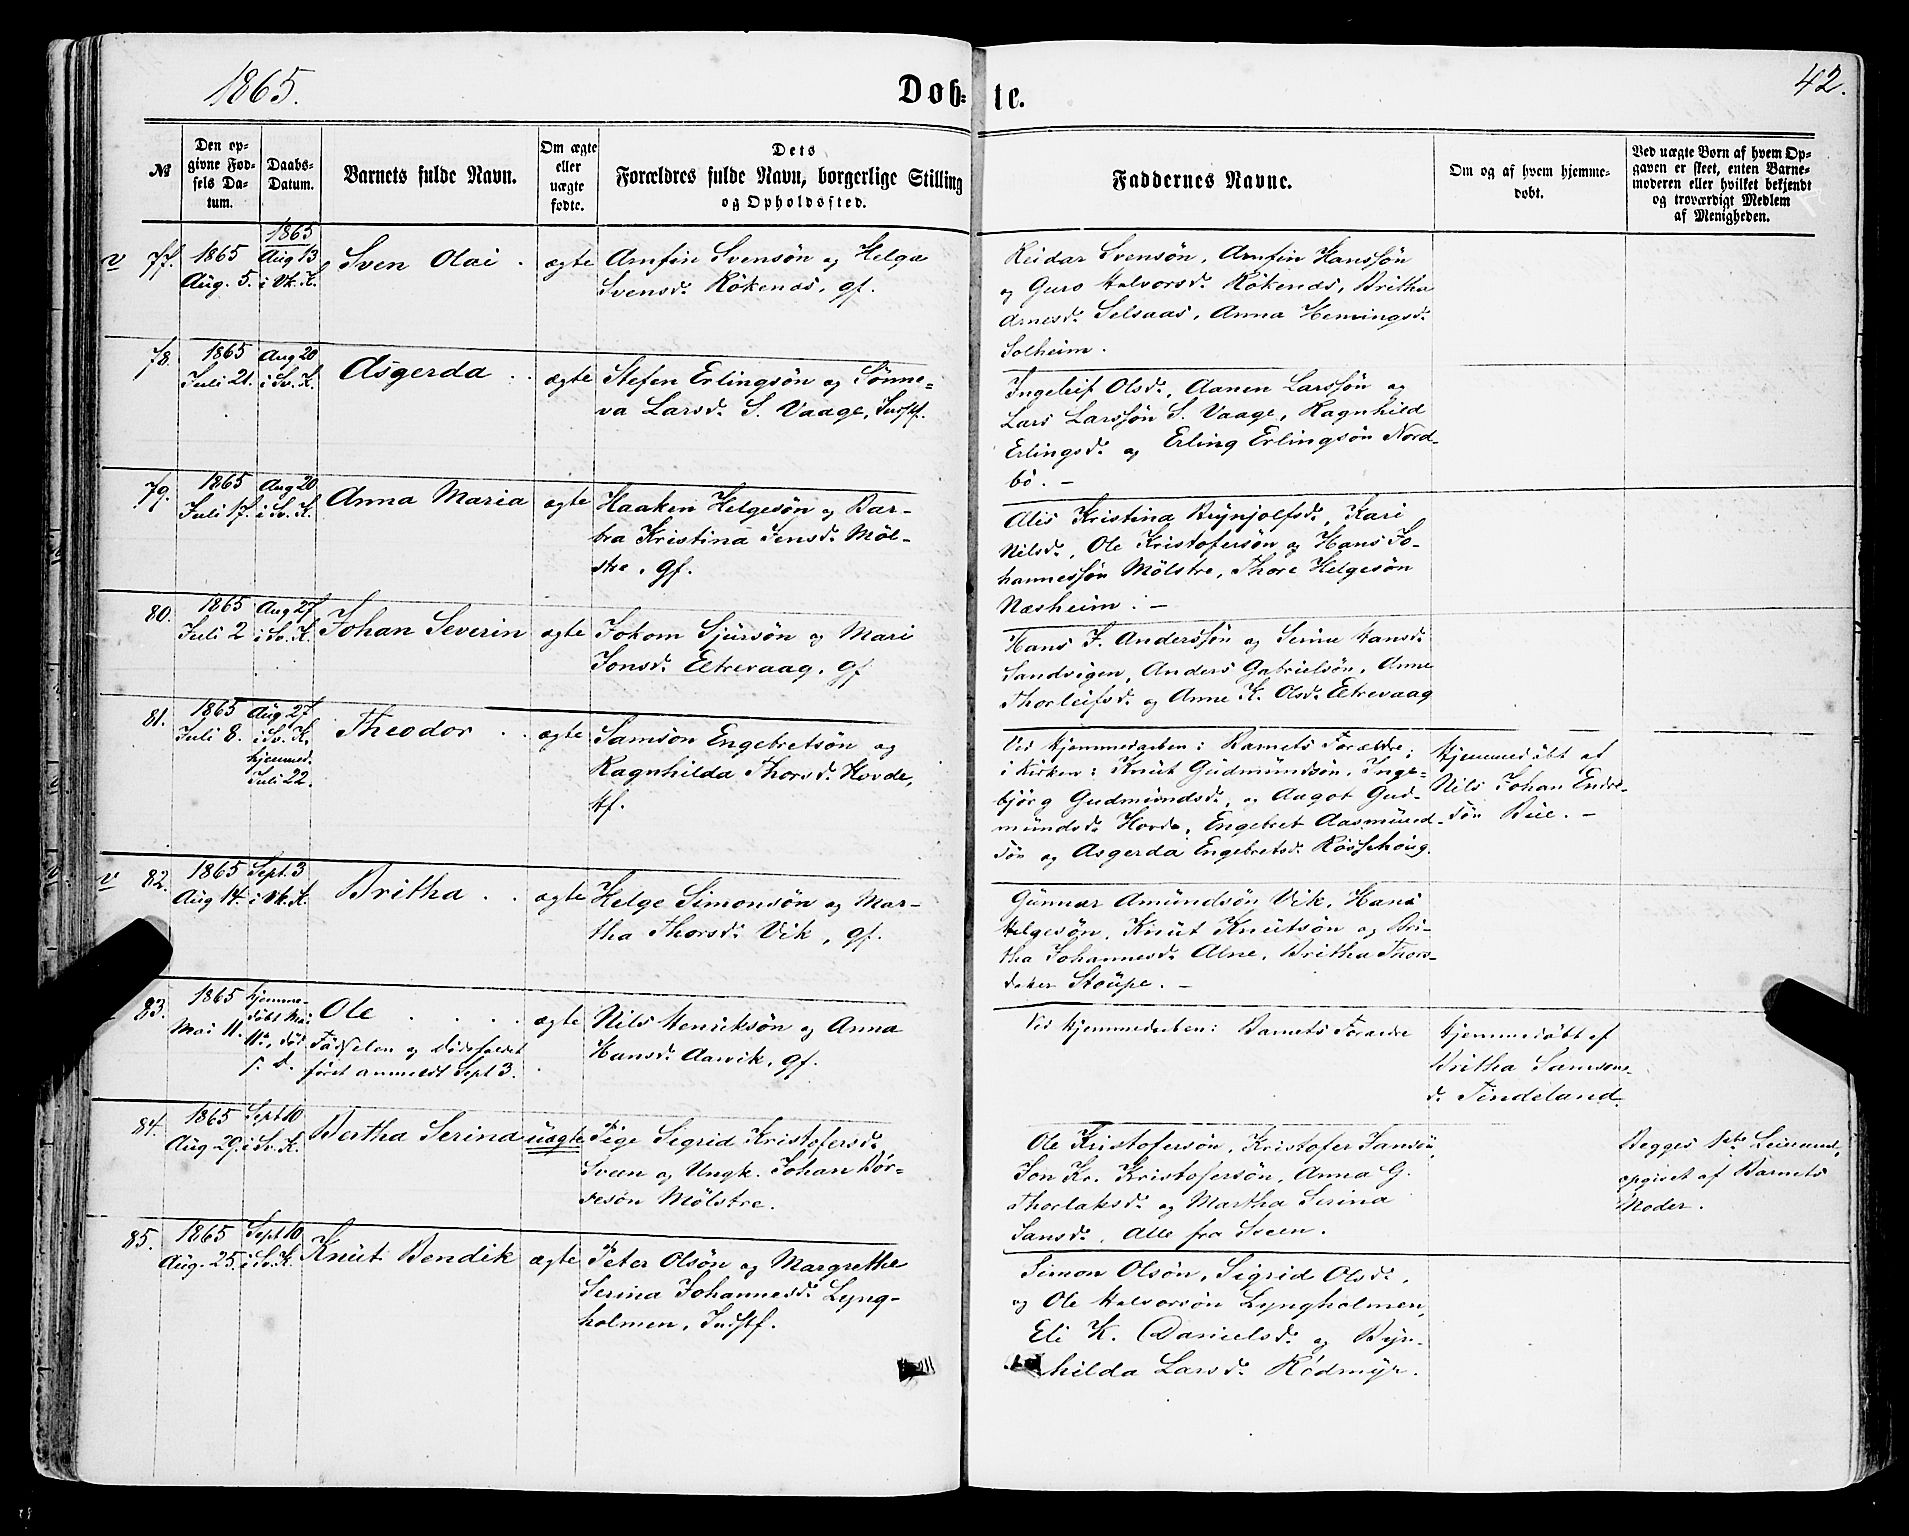 1865.
Döb-
te.
42.
№
Den op-
givne Fød-
sels Da-
tum.
Daabs-
Datum.
Barnets fulde Navn.
Om ægte
eller
uægte
fødte.
Dets
Forældres fulde Navn, borgerlige Stilling
og Opholdssted.
Faddernes Navne.
Om og af hvem hjemme-
døbt.
Ved uægte Børn af hvem Op-
gaven er skeet, enten Barne-
moderen eller hvilket bekjendt
og troværdigt Medlem
af Menigheden.
v 77.
1865
Aug. 5.
1865
Aug 13
i Vk. K.
Sven Olai .
ægte
Arnfin Svensön og Helga
Svensd. Rökenes, gf.
Reidar Svensön, Arnfin Hanssön
og Guro Halvorsd. Rökenes, Britha
Arnesd. Selsaas, Anna Hemingsd.
Solheim.
78.
1865
Juli 21.
Aug 20
i Sv. K.
Asgerda . .
ægte
Stefen Erlingsön og Sönne-
va Larsd. S. Vaage, Indstf.
Ingeleif Olsd., Aanen Larssön og
Lars Larssön S. Vaage, Ragnhild
Erlingsd. og Erling Erlingsön Nord-
bö. -
79.
1865
Juli 17.
Aug 20
i Sv. K.
Anna Maria
ægte
Haaken Helgesön og Bar-
bra Kristina Jensd. Möl-
stre, gf.
Alis Kristina Brynjolfsd., Kari
Nilsd., Ole Kristofersön og Hans Jo-
hannessön Mölstre, Thore Helgesön
Næsheim. -
80.
1865
Juli 2
Aug 27
i Sv. K.
Johan Severin
ægte
Jokom Sjursön og Mari
Jonsd. Eltrevaag, gf
Hans J. Anderssön og Serina Hansd.
Sandvigen, Anders Gabrielsön, Anne
Thorleifsd. og Anne K. Olsd. Eltrevaag
81.
1865
Juli 8.
Aug 27
i Sv. K.
hjemmed.
Juli 22.
Theodor . .
ægte
Samson Engebretsön og
Ragnhilda Thorsd. Hovde,
Hf.
Ved Hjemmedaaben: Barnets Forældre;
i Kirken: Knut Gudmundsön, Inge-
björg Gudmundsd., og Aagot Gud-
mundsd. Hovde, Engebret Aasmund-
sön og Asgerda Engebretsd. Rossehoug.
Hjemmedöbt af
Nils Johan Endre-
sön Bue. -
v 82.
1865
Aug 14.
Sept. 3
i Vk. K.
Britha . .
ægte
Helge Simonsön og Mar-
tha Thorsd. Vik, gf.
Gunnar Amundsön Vik, Hans
Helgesön, Knut Knutsön og Bri-
tha Johannesd. Alne, Britha Thors-
datter Stoupe. -
83.
1865
Mai 11.
hjemme-
döbt Mai
11te, död
s. D.
Ole . . . .
Födselen og Dödsfaldet
först anmeldt Sept 3.
ægte
Nils Henriksön og Anna
Hansd. Aarvik, gf.
Ved Hjemmedaaben: Barnets Forældre
Hjemmedöbt af
Britha Samsons-
d. Tindeland.
84.
1865
Aug 29.
Sept 10
i Sv. K.
Bertha Serina
uægte
Pige Sigrid Kristofersd.
Sveen og Ungk. Johan Bör-
resön Mölstre.
Ole Kristofersön, Kristofer Jansön,
Jon Kr. Kristofersön, Anna G.
Thorlaksd. og Martha Serina
Jansd., Alle fra Sveen.
Begges 1ste Leiermaal,
opgivet af Barnets
Moder.
85.
1865
Aug. 25.
Sept 10
i Sv. K.
Knut Bendik
ægte
Peter Olsön og Margrethe
Serina Johannesd. Lyng-
holmen, Indstf.
Simon Olsön, Sigrid Olsd.,
og Ole Halvorsön Lyngholmen,
Eli K. Danielsd. og Byn-
hilda Larsd. Rödmyr.